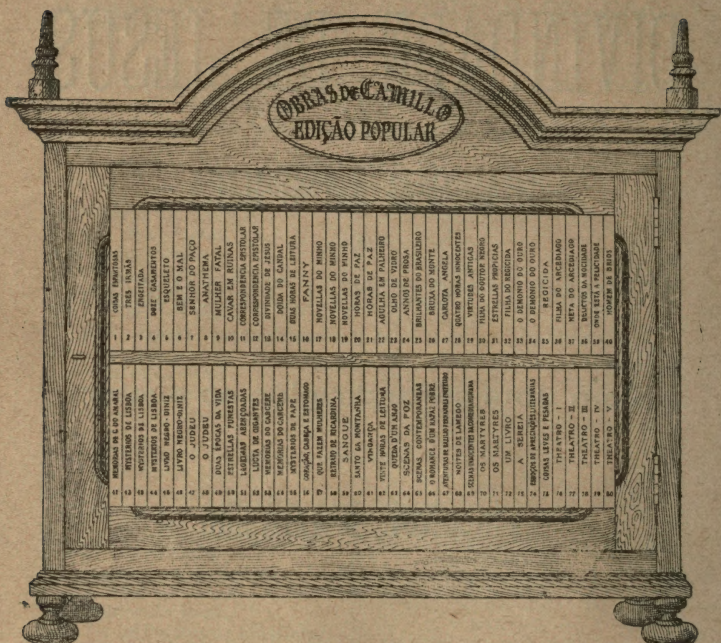 OBRAS DE CAMILLO
EDIÇÃO POPULAR
1 COISAS ESPANTOSAS
2 TRES IRMÃS
3 ENGEITADA
4 DOZE CASAMENTOS
5 ESQUELETO
6 BEM E O MAL
7 SENHOR DO PAÇO
8 ANATHEMA
9 MULHER FATAL
10 CAVAR EM RUINAS
11 CORRESPONDENCIA EPISTOLAR
12 CORRESPONDENCIA EPISTOLAR
13 DIVINDADE DE JESUS
14 DOIDA DO CANDAL
15 DUAS HORAS DE LEITURA
16 FANNY
17 NOVELLAS DO MINHO
18 NOVELLAS DO MINHO
19 NOVELLAS DO MINHO
20 HORAS DE PAZ
21 HORAS DE PAZ
22 AGULHA EM PALHEIRO
23 OLHO DE VIDRO
24 ANNOS DE PROSA
25 BRILHANTES DO BRASILEIRO
26 BRUXA DO MONTE
27 CARLOTA ANGELA
28 QUATRO HORAS INNOCENTES
29 VIRTUDES ANTIGAS
30 FILHA DO DOUTOR NEGRO
31 ESTRELLAS PROPICIAS
32 FILHA DO REGICIDA
33 O DEMONIO DO OURO
34 O DEMONIO DO OURO
35 REGICIDA
36 FILHA DO ARCEDIAGO
37 NETA DO ARCEDIAGO
38 DELICTOS DA MOCIDADE
39 ONDE ESTÁ A FELICIDADE
40 HOMEM DE BRIOS
41 MEMORIAS DE G. DO AMARAL
42 MYSTERIOS DE LISBOA
43 MYSTERIOS DE LISBOA
44 MYSTERIOS DE LISBOA
45 LIVRO NEGRO-DINIZ
46 LIVRO NEGRO-DINIZ
47 O JUDEU
48 O JUDEU
49 DUAS ÉPOCAS DA VIDA
50 ESTRELLAS FUNESTAS
51 LAGRIMAS ABENÇOADAS
52 LUCTA DE GIGANTES
53 MEMORIAS DO CARCERE
54 MEMORIAS DO CARCERE
55 MYSTERIOS DE FAFE
56 CORAÇÃO, CABEÇA, E ESTOMAGO
57 QUE FAZEM MULHERES
58 RETRATO DE RICARDINA
59 SANGUE
60 SANTO DA MONTANHA
61 VINGANÇA
62 VINTE HORAS DE LITEIRA
63 QUEDA D'UM ANJO
64 SCENAS DA FOZ
65 SCENAS CONTEMPORANEAS
66 O ROMANCE D'UM RAPAZ POBRE
67 AVENTURAS DE BAZILIO FERNANDES ENXERTADO
68 NOITES DE LAMEGO
69 SCENAS INNOCENTES DA COMEDIA HUMANA
70 OS MARTYRES
71 OS MARTYRES
72 UM LIVRO
73 A SEREIA
74 ESBOÇOS DE APRECIAÇÕES LITTERARIAS
75 COUSAS LEVES E PESADAS
76 THEATRO - I
77 THEATRO - II
78 THEATRO - III
79 THEATRO - IV
80 THEATRO - V